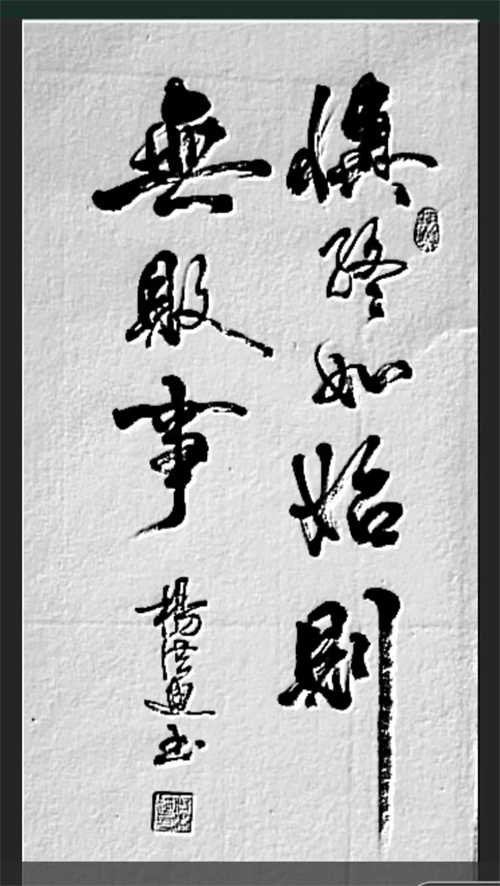 慎終如始則
無敗事
楊洪